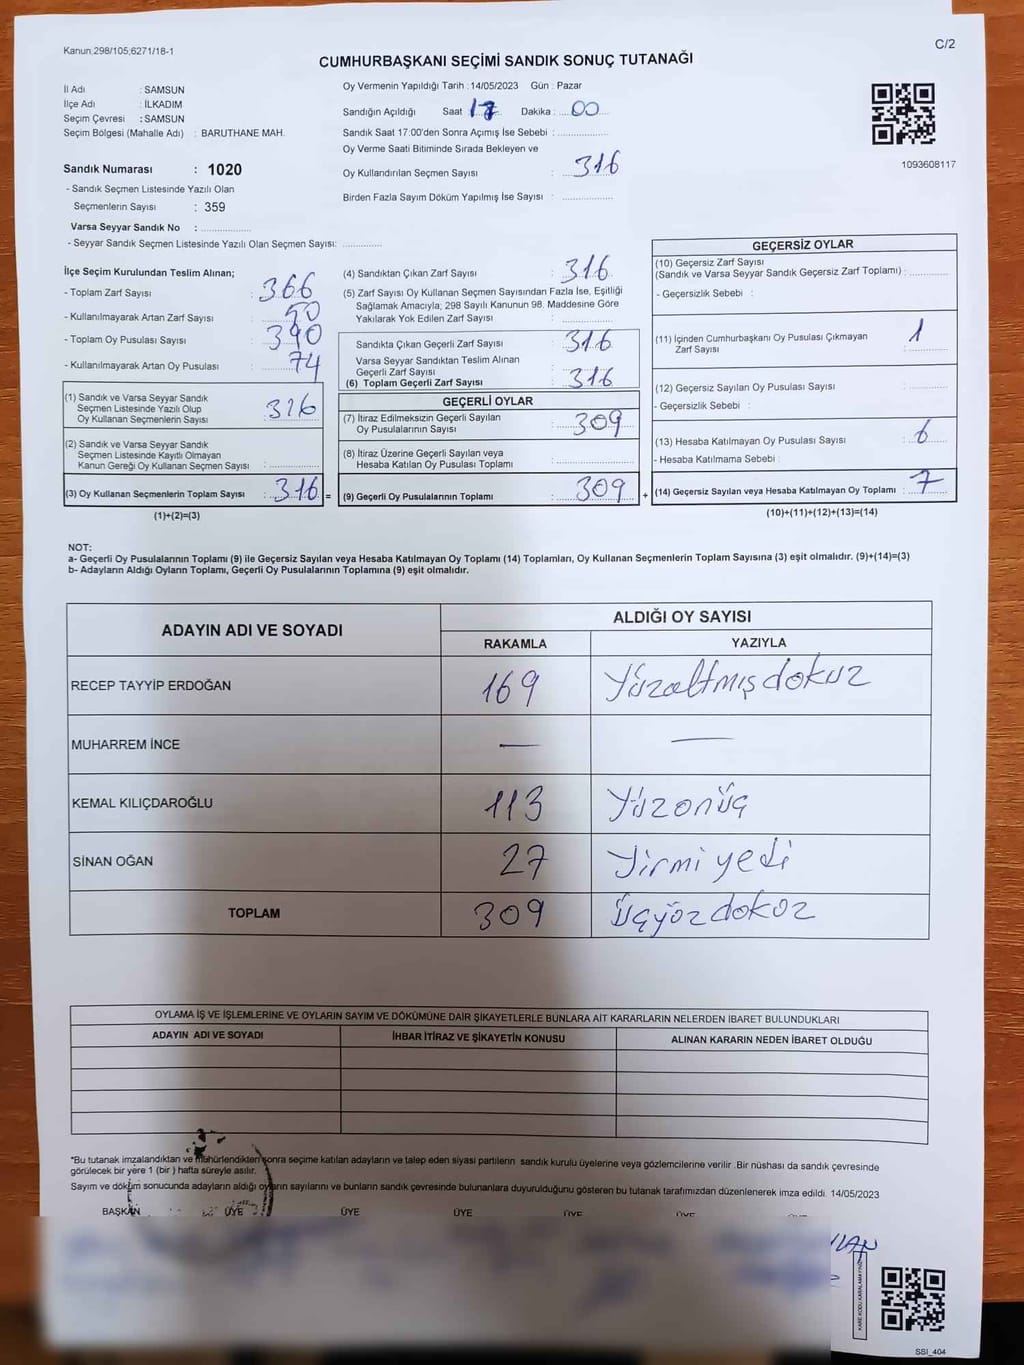 Kanun:298/105;6271/18-1
C/2
CUMHURBAŞKANI SEÇİMİ SANDIK SONUÇ TUTANAĞI
İl Adı : SAMSUN
İlçe Adı : İLKADIM
Seçim Çevresi : SAMSUN
Seçim Bölgesi (Mahalle Adı) : BARUTHANE MAH.
Sandık Numarası : 1020
- Sandık Seçmen Listesinde Yazılı Olan
Seçmenlerin Sayısı : 359
Varsa Seyyar Sandık No :
- Seyyar Sandık Seçmen Listesinde Yazılı Olan Seçmen Sayısı:
Oy Vermenin Yapıldığı Tarih : 14/05/2023 Gün : Pazar
Sandığın Açıldığı Saat 17 Dakika : 00
Sandık Saat 17:00'den Sonra Açımış İse Sebebi :
Oy Verme Saati Bitiminde Sırada Bekleyen ve
Oy Kullandırılan Seçmen Sayısı : 316
Birden Fazla Sayım Döküm Yapılmış İse Sayısı :
1093608117
İlçe Seçim Kurulundan Teslim Alınan;
- Toplam Zarf Sayısı : 366
- Kullanılmayarak Artan Zarf Sayısı : 50
- Toplam Oy Pusulası Sayısı : 390
- Kullanılmayarak Artan Oy Pusulası : 74
(1) Sandık ve Varsa Seyyar Sandık
Seçmen Listesinde Yazılı Olup
Oy Kullanan Seçmenlerin Sayısı : 316
(2) Sandık ve Varsa Seyyar Sandık
Seçmen Listesinde Kayıtlı Olmayan
Kanun Gereği Oy Kullanan Seçmen Sayısı :
(3) Oy Kullanan Seçmenlerin Toplam Sayısı : 316 =
(1)+(2)=(3)
(4) Sandıktan Çıkan Zarf Sayısı : 316
(5) Zarf Sayısı Oy Kullanan Seçmen Sayısından Fazla İse, Eşitliği
Sağlamak Amacıyla; 298 Sayılı Kanunun 98. Maddesine Göre
Yakılarak Yok Edilen Zarf Sayısı :
Sandıkta Çıkan Geçerli Zarf Sayısı : 316
Varsa Seyyar Sandıktan Teslim Alınan
Geçerli Zarf Sayısı :
(6) Toplam Geçerli Zarf Sayısı : 316
GEÇERLİ OYLAR
(7) İtiraz Edilmeksizin Geçerli Sayılan
Oy Pusulalarının Sayısı : 309
(8) İtiraz Üzerine Geçerli Sayılan veya
Hesaba Katılan Oy Pusulası Toplamı :
(9) Geçerli Oy Pusulalarının Toplamı : 309 +
GEÇERSİZ OYLAR
(10) Geçersiz Zarf Sayısı
(Sandık ve Varsa Seyyar Sandık Geçersiz Zarf Toplamı) :
- Geçersizlik Sebebi :
(11) İçinden Cumhurbaşkanı Oy Pusulası Çıkmayan
Zarf Sayısı : 1
(12) Geçersiz Sayılan Oy Pusulası Sayısı :
- Geçersizlik Sebebi :
(13) Hesaba Katılmayan Oy Pusulası Sayısı : 6
- Hesaba Katılmama Sebebi :
(14) Geçersiz Sayılan veya Hesaba Katılmayan Oy Toplamı : 7
(10)+(11)+(12)+(13)=(14)
NOT:
a- Geçerli Oy Pusulalarının Toplamı (9) ile Geçersiz Sayılan veya Hesaba Katılmayan Oy Toplamı (14) Toplamları, Oy Kullanan Seçmenlerin Toplam Sayısına (3) eşit olmalıdır. (9)+(14)=(3)
b- Adayların Aldığı Oyların Toplamı, Geçerli Oy Pusulalarının Toplamına (9) eşit olmalıdır.
ADAYIN ADI VE SOYADI
ALDIĞI OY SAYISI
RAKAMLA YAZIYLA
RECEP TAYYİP ERDOĞAN 169 Yüzaltmışdokuz
MUHARREM İNCE — —
KEMAL KILIÇDAROĞLU 113 Yüzonüç
SİNAN OĞAN 27 Yirmiyedi
TOPLAM 309 Üçyüzdokuz
OYLAMA İŞ VE İŞLEMLERİNE VE OYLARIN SAYIM VE DÖKÜMÜNE DAİR ŞİKAYETLERLE BUNLARA AİT KARARLARIN NELERDEN İBARET BULUNDUKLARI
ADAYIN ADI VE SOYADI İHBAR İTİRAZ VE ŞİKAYETİN KONUSU ALINAN KARARIN NEDEN İBARET OLDUĞU
*Bu tutanak imzalandıktan ve mühürlendikten sonra seçime katılan adayların ve talep eden siyasi partilerin sandık kurulu üyelerine veya gözlemcilerine verilir .Bir nüshası da sandık çevresinde
görülecek bir yere 1 (bir ) hafta süreyle asılır.
Sayım ve döküm sonucunda adayların aldığı oyların sayılarını ve bunların sandık çevresinde bulunanlara duyurulduğunu gösteren bu tutanak tarafımızdan düzenlenerek imza edildi. 14/05/2023
BAŞKAN ÜYE ÜYE ÜYE ÜYE ÜYE
SSI_404